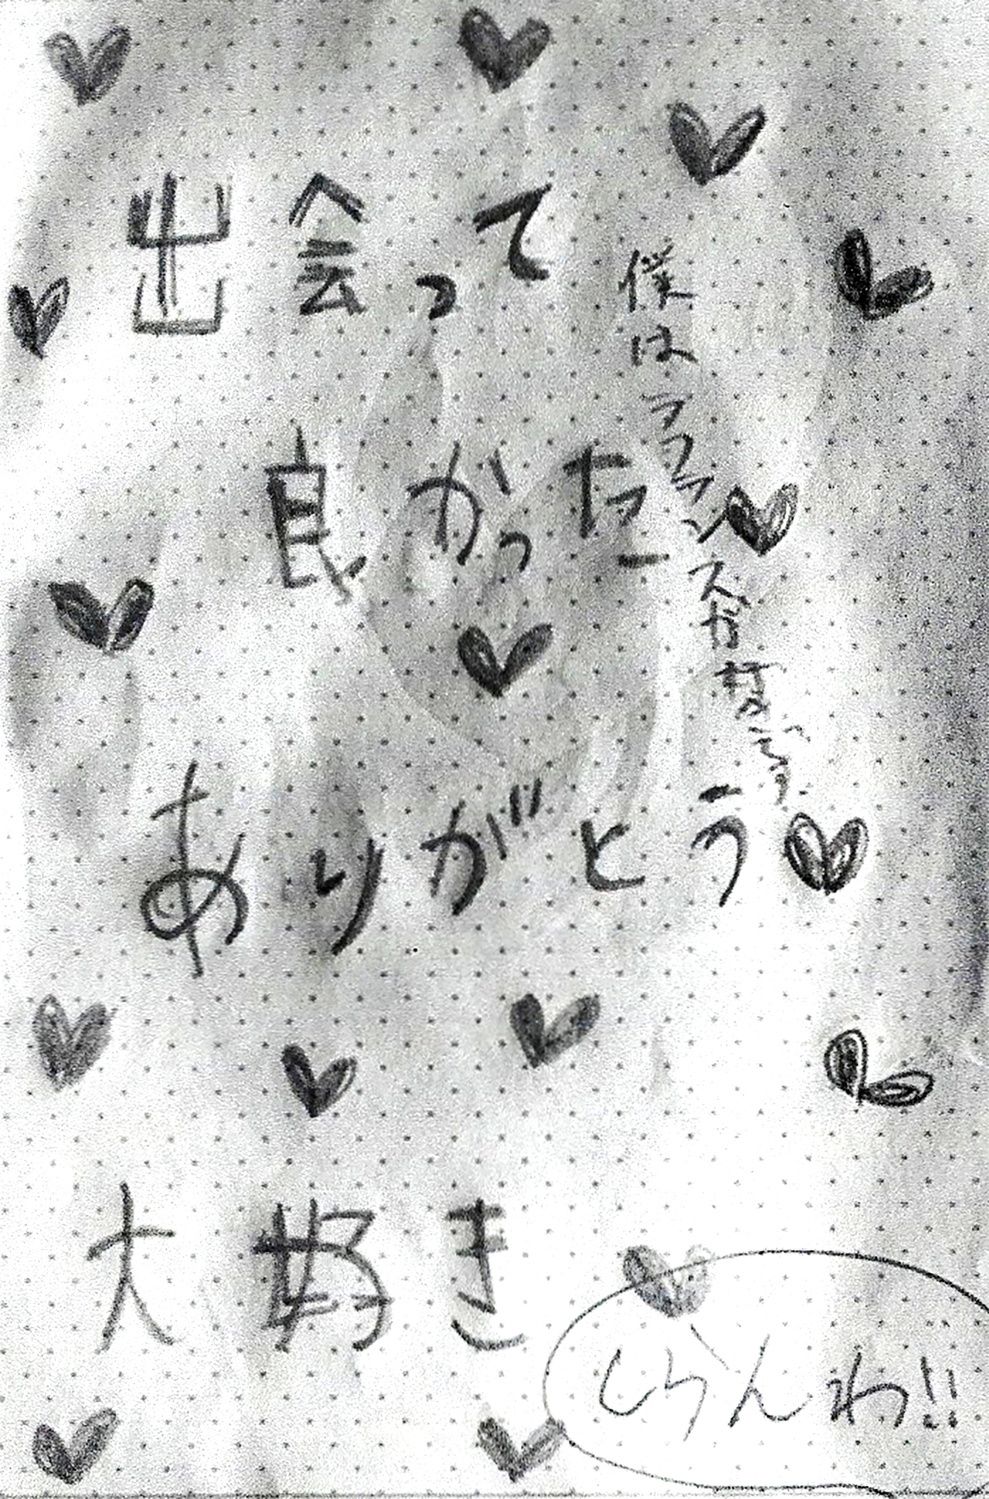 出会って
良かった
ありがとう
大好き
僕はフランスが好きです
しらんわ!!